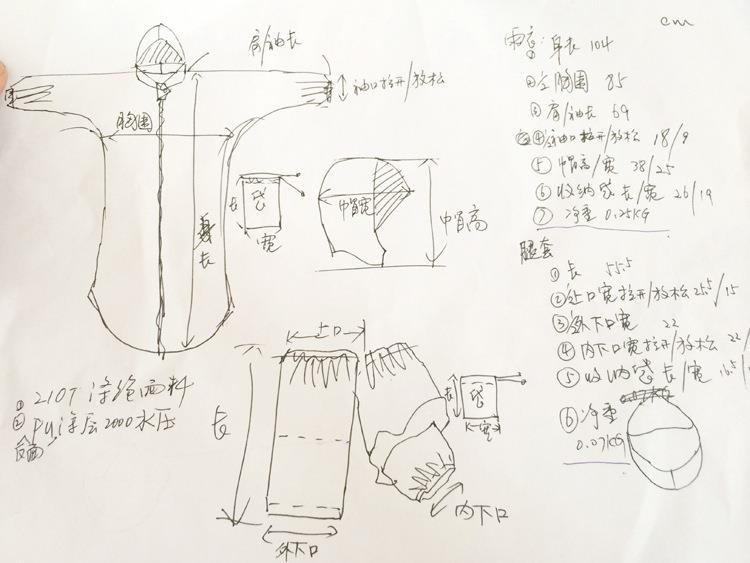 cm
肩/袖长
袖口拉开/放松
胸围
身长
长
袋
宽
帽宽
帽高
雨衣: 身长 104
②全胸围 85
③肩/袖长 69
④袖口拉开/放松 18/9
⑤帽高/宽 38/25
⑥收纳袋长/宽 26/19
⑦净重 0.25KG
腿套
①长 55.5
②上口宽拉开/放松 25.5/15
③外下口宽 22
④内下口宽拉开/放松 22/
⑤收纳袋长/宽 16.5/
⑥净重
0.07KG
①210T 涤纶面料
②PU涂层2000水压
反面
上口
长
外下口
内下口
长
袋
宽